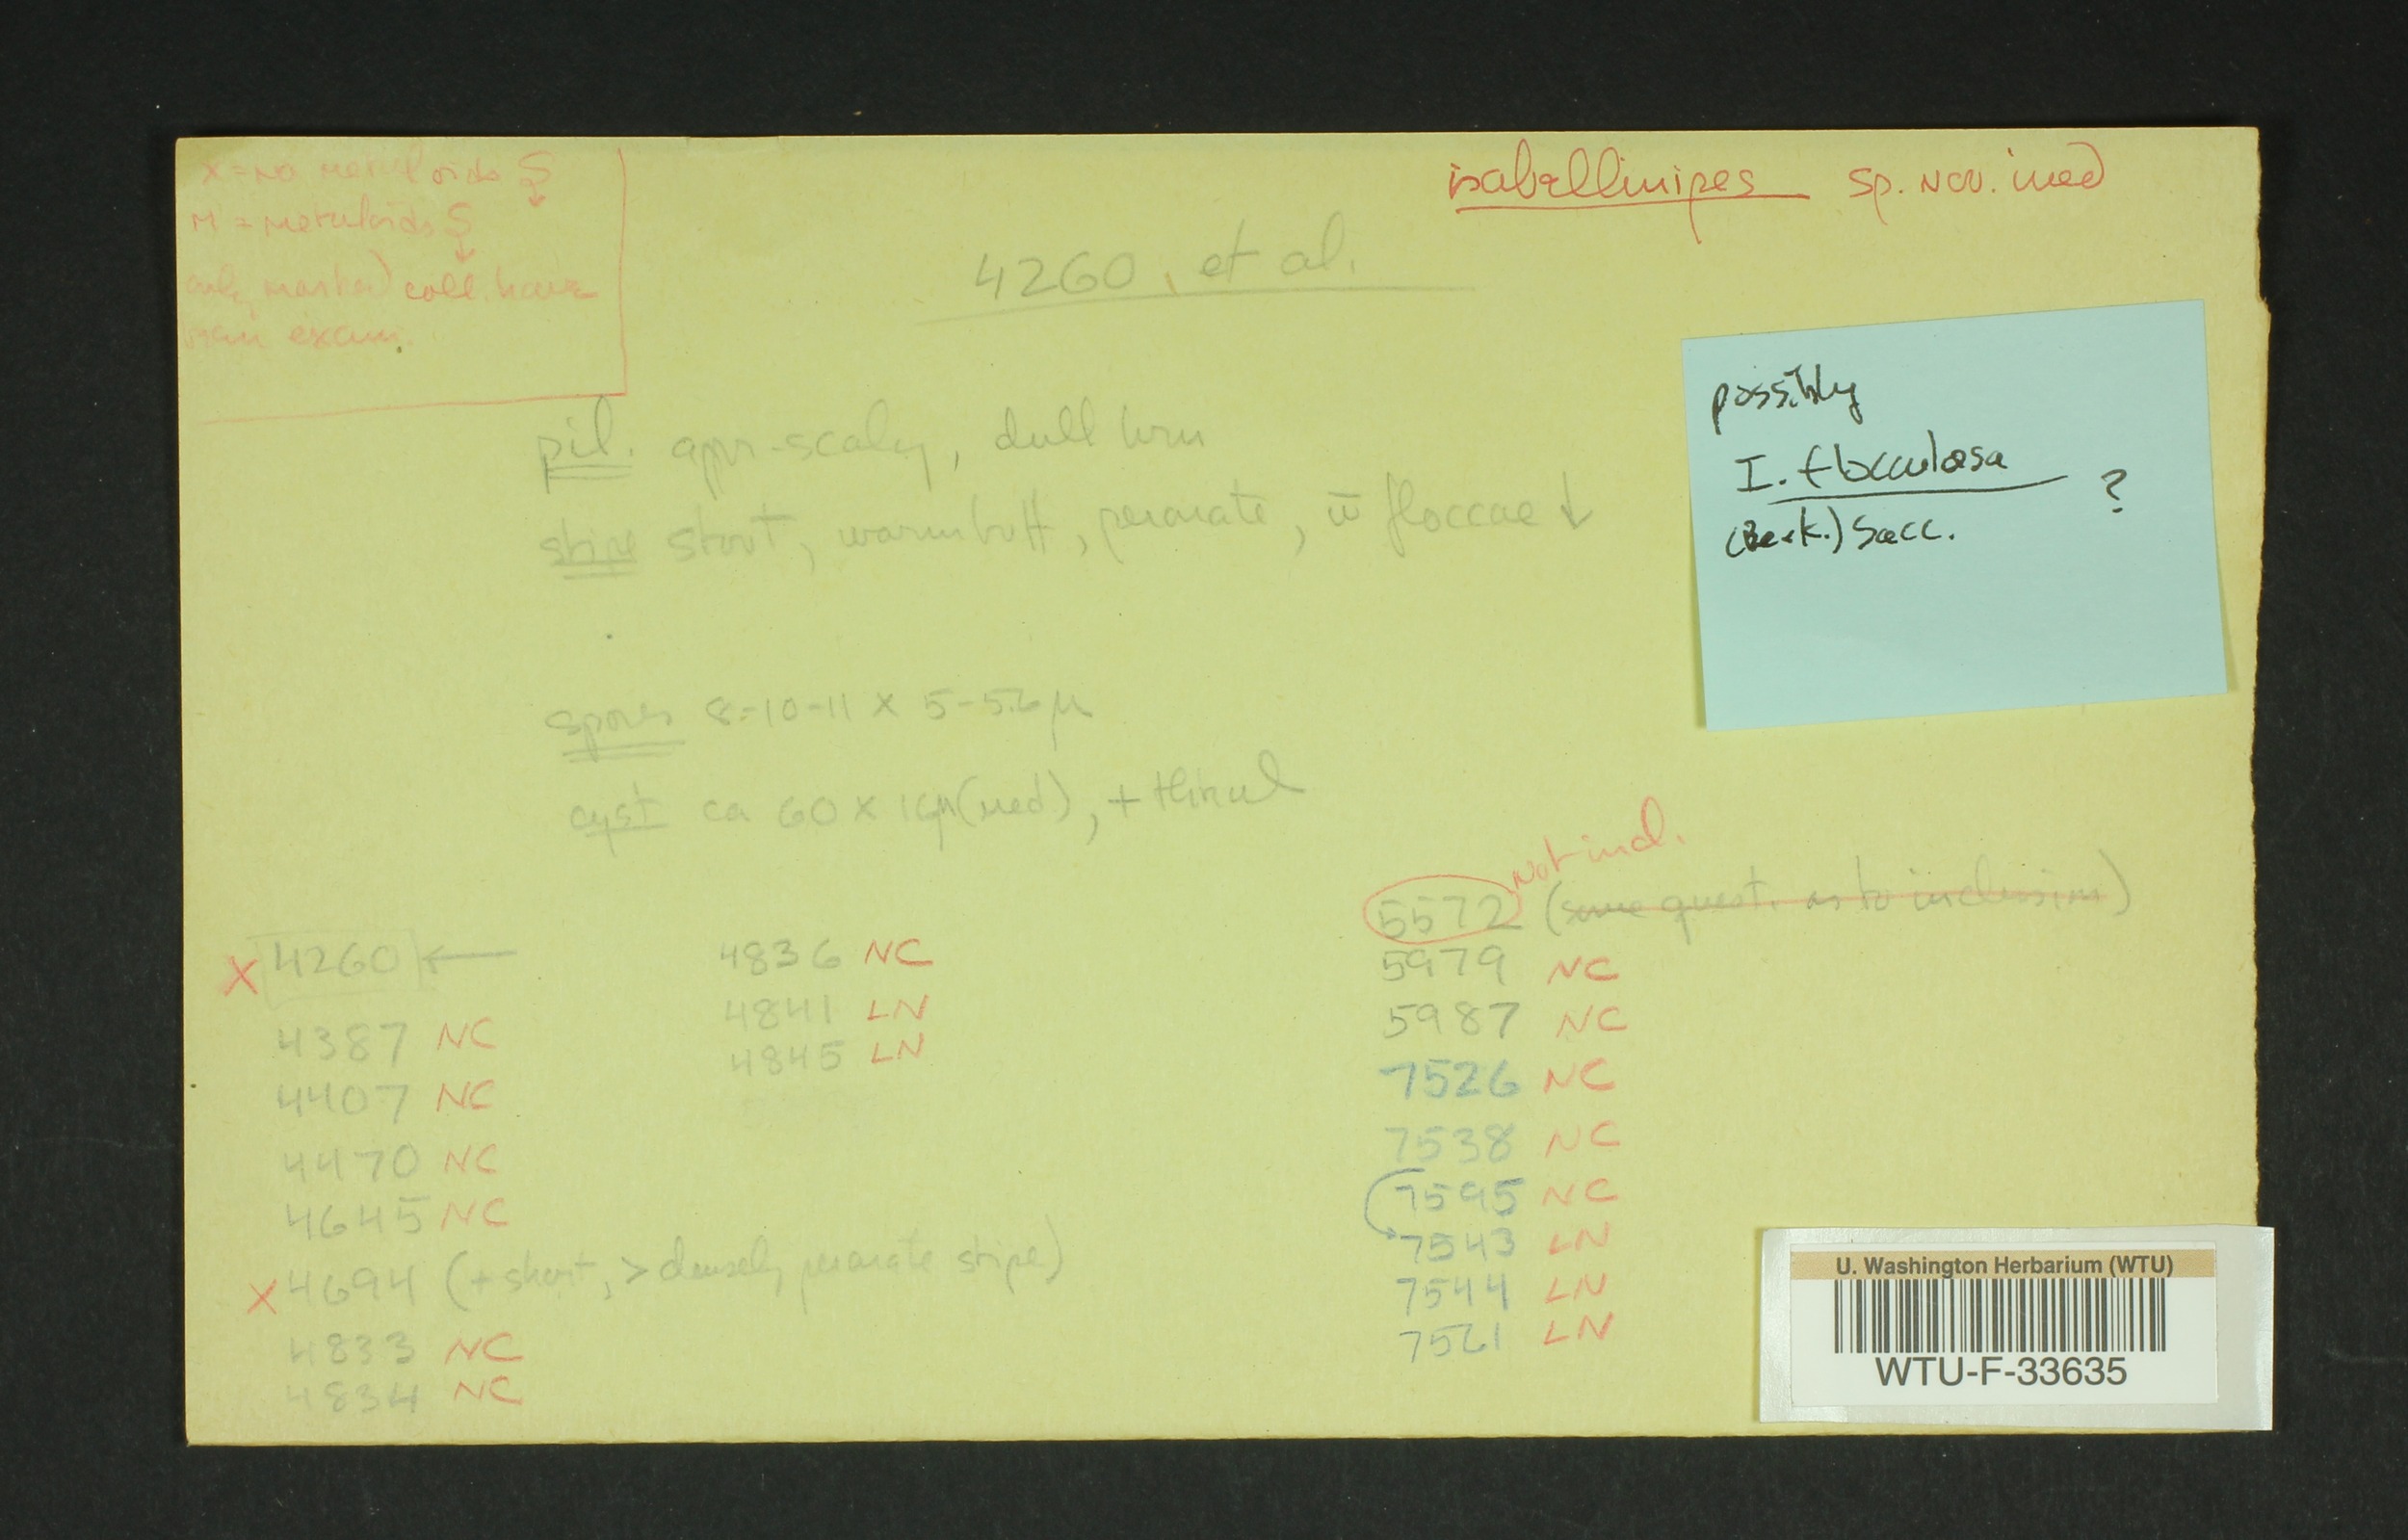 x = no metuloids S↓
M = metuloids S↓
only marked coll. have
been exam.
isabellinipes sp. nov. ined
4260, et al.
possibly
I. flocculosa ?
(Berk.) Sacc.
pil. appr.-scaly, dull brn
stipe stout, warm buff, peronate, w̄ floccae ↓
spores 8-10-11 x 5-5.6 µ
cyst ca 60 x 16µ (med), + thinwl
X 4260 ←
4387 NC
4407 NC
4470 NC
4645 NC
X 4694 (+ short, > densely peronate stipe)
4833 NC
4834 NC
4836 NC
4841 LN
4845 LN
Not incl.
5572 (some quest. as to inclusion)
5979 NC
5987 NC
7526 NC
7538 NC
7595 NC
7543 LN
7544 LN
7561 LN
U. Washington Herbarium (WTU)
WTU-F-33635